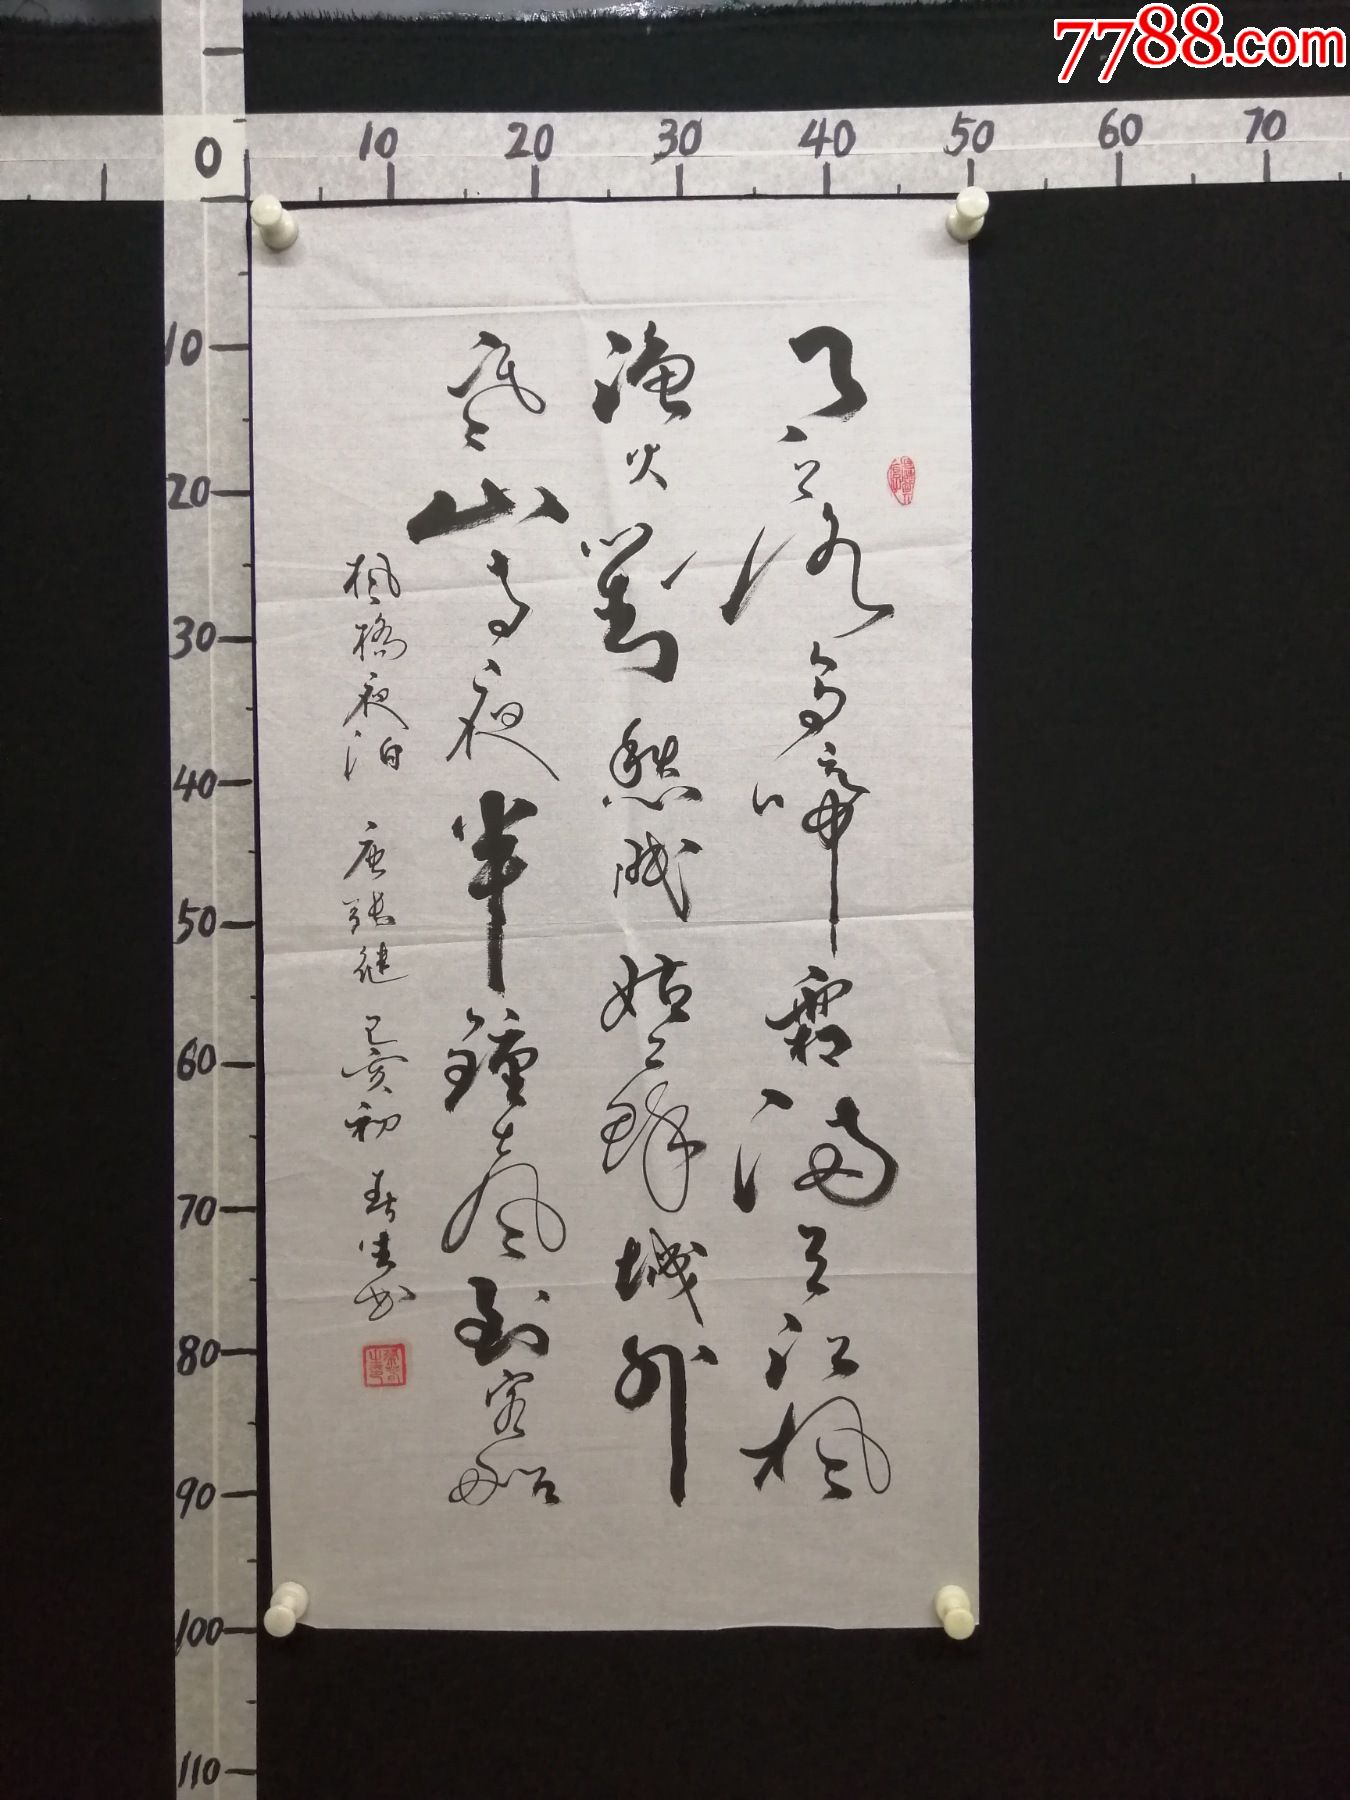 7788.com
0 10 20 30 40 50 60 70
10
20
30
40
50
60
70
80
90
100
110
月落烏啼霜滿天江楓
漁火對愁眠姑蘇城外
寒山寺夜半鐘聲到客船
楓橋夜泊 唐張繼 己亥初